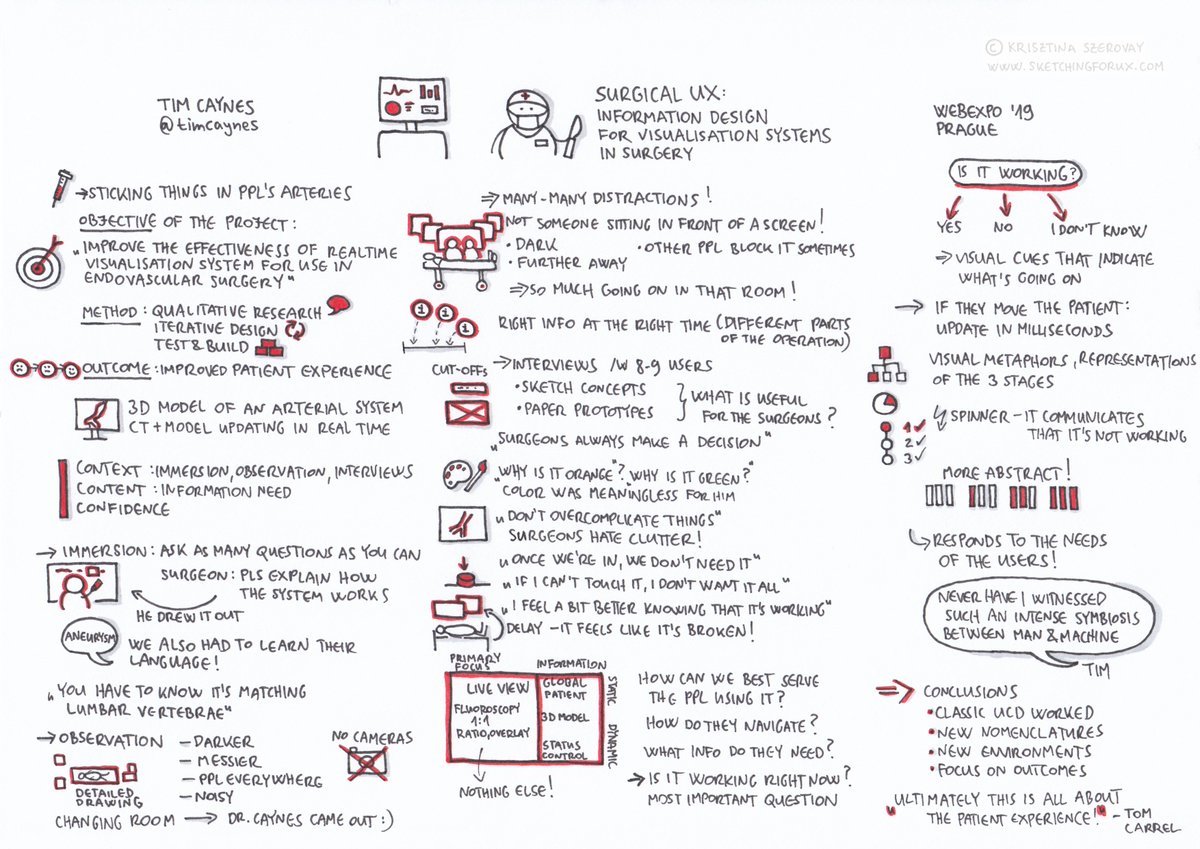 © KRISZTINA SZEROVAY
WWW.SKETCHINGFORUX.COM
TIM CAYNES
@timcaynes
SURGICAL UX:
INFORMATION DESIGN
FOR VISUALISATION SYSTEMS
IN SURGERY
WEBEXPO '19
PRAGUE
→STICKING THINGS IN PPL'S ARTERIES
OBJECTIVE OF THE PROJECT:
„IMPROVE THE EFFECTIVENESS OF REALTIME
VISUALISATION SYSTEM FOR USE IN
ENDOVASCULAR SURGERY"
METHOD: QUALITATIVE RESEARCH
ITERATIVE DESIGN
TEST & BUILD
OUTCOME: IMPROVED PATIENT EXPERIENCE
3D MODEL OF AN ARTERIAL SYSTEM
CT + MODEL UPDATING IN REAL TIME
CONTEXT: IMMERSION, OBSERVATION, INTERVIEWS
CONTENT: INFORMATION NEED
CONFIDENCE
→ IMMERSION: ASK AS MANY QUESTIONS AS YOU CAN
SURGEON: PLS EXPLAIN HOW
THE SYSTEM WORKS
HE DREW IT OUT
ANEURYSM
WE ALSO HAD TO LEARN THEIR
LANGUAGE!
„YOU HAVE TO KNOW IT'S MATCHING
LUMBAR VERTEBRAE"
→ OBSERVATION
– DARKER
– MESSIER
– PPL EVERYWHERE
– NOISY
DETAILED
DRAWING
NO CAMERAS
CHANGING ROOM → DR. CAYNES CAME OUT :)
⇒ MANY-MANY DISTRACTIONS!
NOT SOMEONE SITTING IN FRONT OF A SCREEN!
• DARK
• OTHER PPL BLOCK IT SOMETIMES
• FURTHER AWAY
⇒ SO MUCH GOING ON IN THAT ROOM!
i i i
RIGHT INFO AT THE RIGHT TIME (DIFFERENT PARTS
OF THE OPERATION)
→ INTERVIEWS /W 8-9 USERS
CUT-OFFS
• SKETCH CONCEPTS
• PAPER PROTOTYPES
WHAT IS USEFUL
FOR THE SURGEONS?
„SURGEONS ALWAYS MAKE A DECISION"
„WHY IS IT ORANGE"? „WHY IS IT GREEN?"
COLOR WAS MEANINGLESS FOR HIM
„DON'T OVERCOMPLICATE THINGS"
SURGEONS HATE CLUTTER!
„ONCE WE'RE IN, WE DON'T NEED IT"
„IF I CAN'T TOUCH IT, I DON'T WANT IT ALL"
„I FEEL A BIT BETTER KNOWING THAT IT'S WORKING"
DELAY – IT FEELS LIKE IT'S BROKEN!
PRIMARY
FOCUS
INFORMATION
LIVE VIEW
FLUOROSCOPY
1:1
RATIO, OVERLAY
GLOBAL
PATIENT
3D MODEL
STATUS
CONTROL
STATIC
DYNAMIC
NOTHING ELSE!
HOW CAN WE BEST SERVE
THE PPL USING IT?
HOW DO THEY NAVIGATE?
WHAT INFO DO THEY NEED?
→ IS IT WORKING RIGHT NOW?
MOST IMPORTANT QUESTION
IS IT WORKING?
YES NO I DON'T KNOW
⇒ VISUAL CUES THAT INDICATE
WHAT'S GOING ON
→ IF THEY MOVE THE PATIENT:
UPDATE IN MILLISECONDS
VISUAL METAPHORS, REPRESENTATIONS
OF THE 3 STAGES
SPINNER – IT COMMUNICATES
THAT IT'S NOT WORKING
1 ✓
2 ✓
3 ✓
MORE ABSTRACT!
RESPONDS TO THE NEEDS
OF THE USERS!
NEVER HAVE I WITNESSED
SUCH AN INTENSE SYMBIOSIS
BETWEEN MAN & MACHINE
TIM
⇒ CONCLUSIONS
• CLASSIC UCD WORKED
• NEW NOMENCLATURES
• NEW ENVIRONMENTS
• FOCUS ON OUTCOMES
„ULTIMATELY THIS IS ALL ABOUT
THE PATIENT EXPERIENCE!" – TOM
CARREL